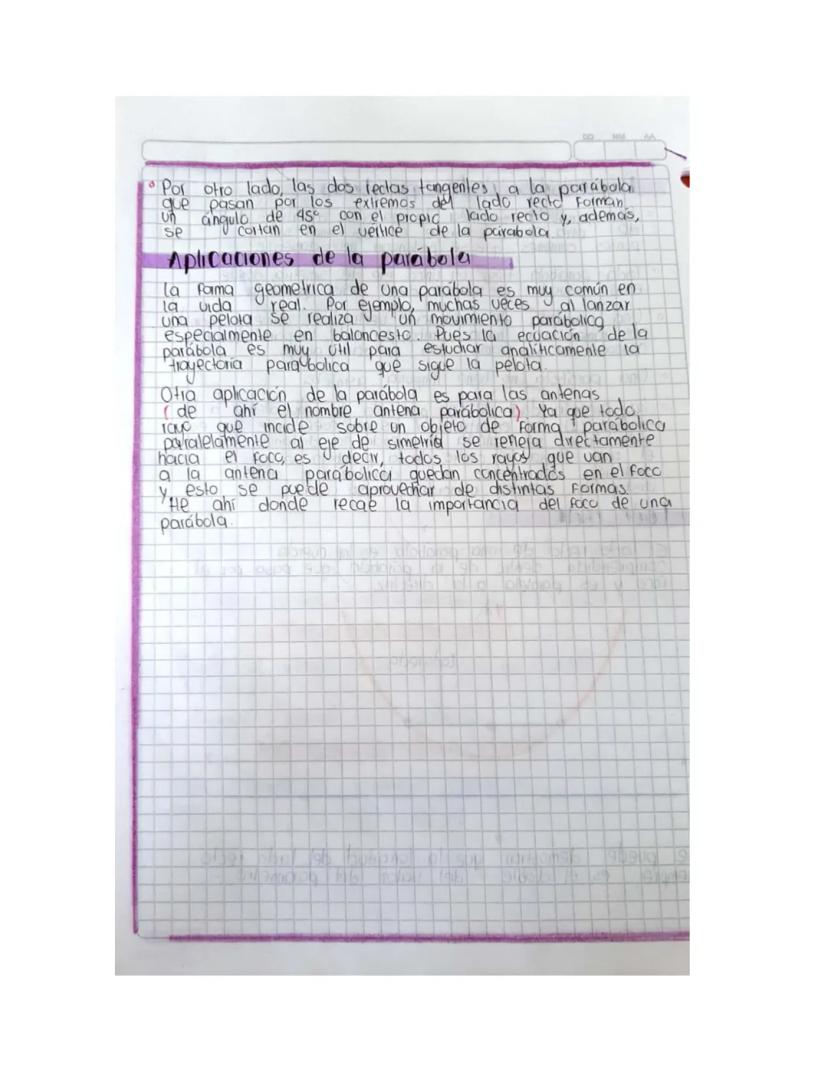 Por otro lado, las dos rectas tangentes a la parábola
que pasan por los extremos del lado recto forman
un ángulo de 45° con el propio lado recto y, además,
se cortan en el vertice de la parabola.
Aplicaciones de la parábola
la rama geometrica de una parábola es muy común en
la vida real. Por ejemplo, muchas veces al lanzar
una pelota se realiza un movimiento parábolico
especialmente en baloncesto. Pues la ecuación de la
parábola es muy util para estudiar analíticamente la
trayectoria parabolica que sigue la pelota.
Otra aplicación de la parábola es para las antenas
(de ahí el nombre antena parábolica) Ya que todo
rayo que incide sobre un objeto de forma parabolica
paralelamente al eje de simetría se refleja directamente
hacia el foco, es decir, todos los rayos que van
a la antena parabolica quedan concentrados en el foco
y esto se puede aprovechar de distintas formas.
He ahí donde recae la importancia del foco de una
parábola.